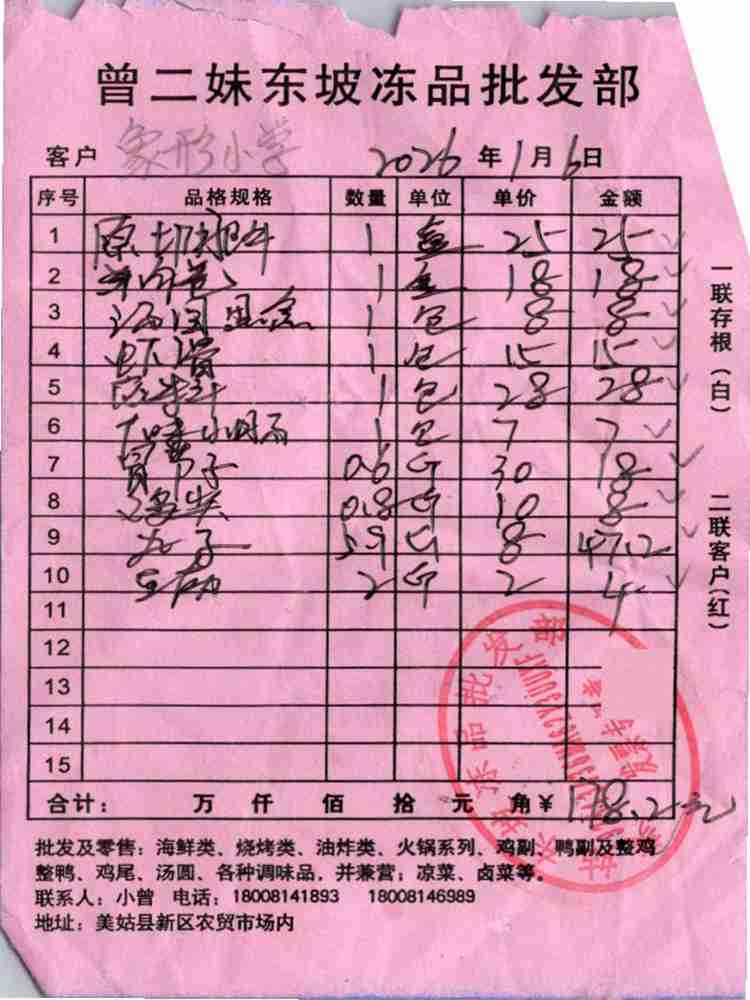 曾二妹东坡冻品批发部
客户 象形小学 2026年1月6日
序号 品格规格 数量 单位 单价 金额
1 原切肥牛 1 盒 25 25
2 1 盒 18 18
3 1 包 8 8
4 虾滑 1 包 15 15
5 1 包 28 28
6 1 包 7 7
7 0.6 斤 30 18
8 0.8 斤 10 8
9 丸子 5.9 斤 8 47.2
10 2 斤 2 4
11
12
13
14
15
合计: 万 仟 佰 拾 元 角¥ 178.2元
批发及零售:海鲜类、烧烤类、油炸类、火锅系列、鸡副、鸭副及整鸡
整鸭、鸡尾、汤圆、各种调味品,并兼营;凉菜、卤菜等。
联系人:小曾 电话:18008141893 18008146989
地址:美姑县新区农贸市场内
一联存根(白)
二联客户(红)